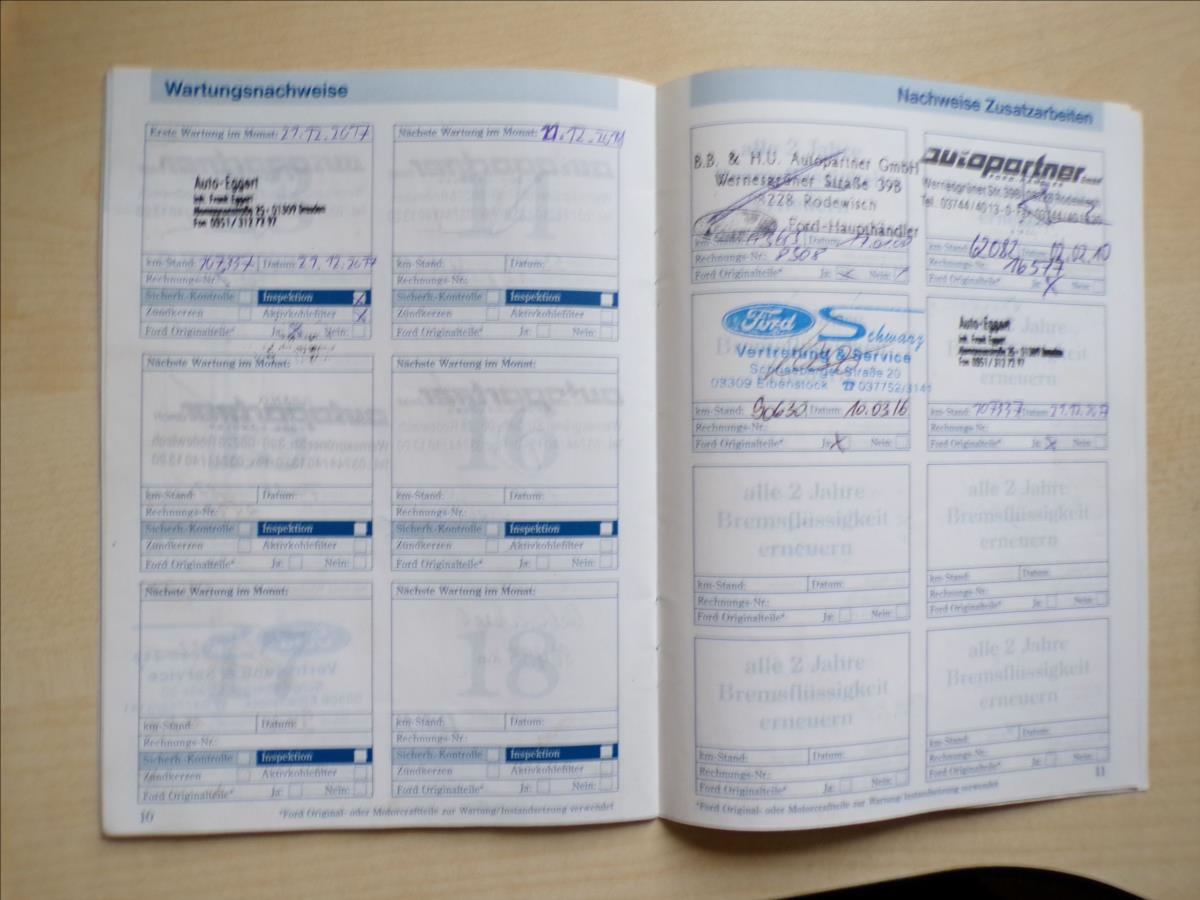 Wartungsnachweise
Erste Wartung im Monat: 21.12.2017
Auto-Eggert
Inh. Frank Eggert
25 - 01309 Dresden
Fon 0351 / 312 73 97
km-Stand: 107337 Datum: 21.12.2017
Rechnungs-Nr.:
Sicherh.-Kontrolle Inspektion X
Zündkerzen Aktivkohlefilter X
Ford Originalteile* Ja: X Nein:
Nächste Wartung im Monat:
km-Stand: Datum:
Rechnungs-Nr.:
Sicherh.-Kontrolle Inspektion
Zündkerzen Aktivkohlefilter
Ford Originalteile* Ja: Nein:
Nächste Wartung im Monat:
km-Stand: Datum:
Rechnungs-Nr.:
Sicherh.-Kontrolle Inspektion
Zündkerzen Aktivkohlefilter
Ford Originalteile* Ja: Nein:
Nächste Wartung im Monat:
16
km-Stand: Datum:
Rechnungs-Nr.:
Sicherh.-Kontrolle Inspektion
Zündkerzen Aktivkohlefilter
Ford Originalteile* Ja: Nein:
Nächste Wartung im Monat:
17
km-Stand: Datum:
Rechnungs-Nr.:
Sicherh.-Kontrolle Inspektion
Zündkerzen Aktivkohlefilter
Ford Originalteile* Ja: Nein:
Nächste Wartung im Monat:
18
km-Stand: Datum:
Rechnungs-Nr.:
Sicherh.-Kontrolle Inspektion
Zündkerzen Aktivkohlefilter
Ford Originalteile* Ja: Nein:
*Ford Original- oder Motorcraftteile zur Wartung/Instandsetzung verwendet
10
Nachweise Zusatzarbeiten
B.B. & H.U. Autopartner GmbH
Wernesgrüner Straße 39B
08228 Rodewisch
Ford-Haupthändler
km-Stand: Datum:
Rechnungs-Nr.: 8508
Ford Originalteile* Ja: X Nein:
autopartner GmbH
Wernesgrüner Str. 39B, 08228 Rodewisch
Tel. 03744/4013-0 Fax 03744/401320
km-Stand: 62082 Datum: 12.02.10
Rechnungs-Nr. 16577
Ford Originalteile* Ja: X Nein:
Ford Schwarz
Vertretung & Service
Schneeberger Straße 20
08309 Eibenstock ☎ 037752/3141
km-Stand: 90630 Datum: 10.03.16
Rechnungs-Nr.:
Ford Originalteile* Ja: X Nein:
Auto-Eggert
Inh. Frank Eggert
25 - 01309 Dresden
Fon 0351 / 312 73 97
km-Stand: 107337 Datum: 21.12.2017
Rechnungs-Nr.:
Ford Originalteile* Ja: X Nein:
alle 2 Jahre
Bremsflüssigkeit
erneuern
km-Stand: Datum:
Rechnungs-Nr.:
Ford Originalteile* Ja: Nein:
alle 2 Jahre
Bremsflüssigkeit
erneuern
km-Stand: Datum:
Rechnungs-Nr.:
Ford Originalteile* Ja: Nein:
alle 2 Jahre
Bremsflüssigkeit
erneuern
km-Stand: Datum:
Rechnungs-Nr.:
Ford Originalteile* Ja: Nein:
alle 2 Jahre
Bremsflüssigkeit
erneuern
km-Stand: Datum:
Rechnungs-Nr.:
Ford Originalteile* Ja: Nein:
*Ford Original- oder Motorcraftteile zur Wartung/Instandsetzung verwendet
11